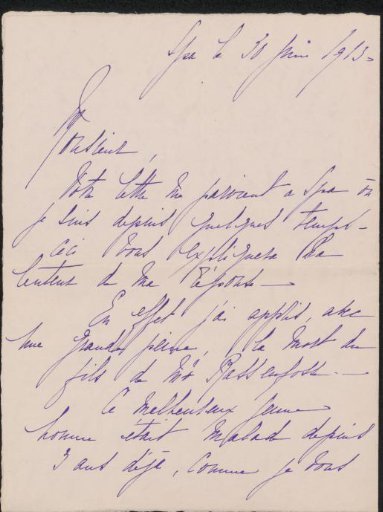 Spa le 30 juin 1913 -
Monsieur,
Votre lettre me parvient a Spa où
je suis depuis quelques temps -
ceci vous expliquera la
lenteur de ma réponse -
En effet j'ai appris, avec
une grande peine, la mort du
fils de Mr Rassenfosse -
Ce malheureux jeune
homme était malade depuis
3 ans déjà, comme je vous